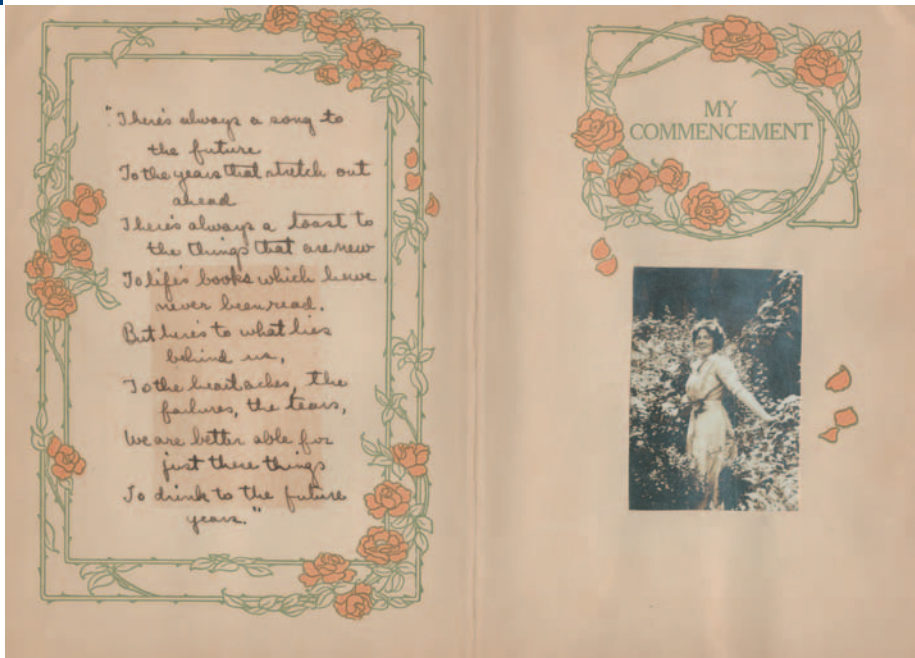 "There's always a song to
the future
To the years that stretch out
ahead
There's always a toast to
the things that are new
To life's books which have
never been read.
But here's to what lies
behind us,
To the heartaches, the
failures, the tears,
We are better able for
just these things
To drink to the future
years."
MY
COMMENCEMENT